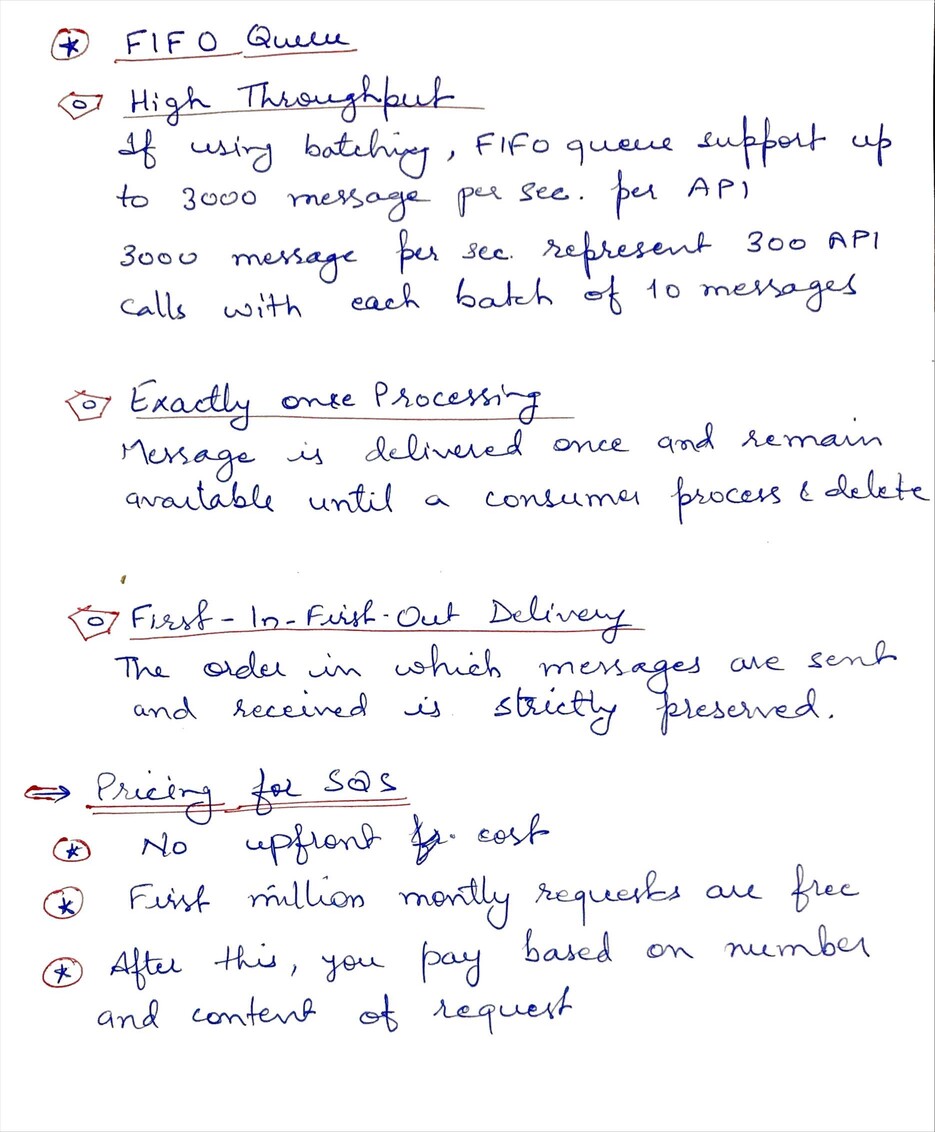 FIFO Queue
High Throughput
If using batching, FIFO queue support up
to 3000 message per sec. per API
3000 message per sec. represent 300 API
calls with each batch of 10 messages
Exactly once Processing
Message is delivered once and remain
available until a consumer process & delete
First-In-First-Out Delivery
The order in which messages are sent
and received is strictly preserved.
⇒ Pricing for SQS
No upfront cost
First million montly requests are free
After this, you pay based on number
and content of request